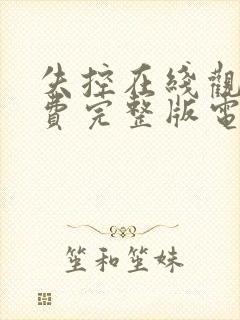 失控在线觀
費完整版電
笙和笙妹